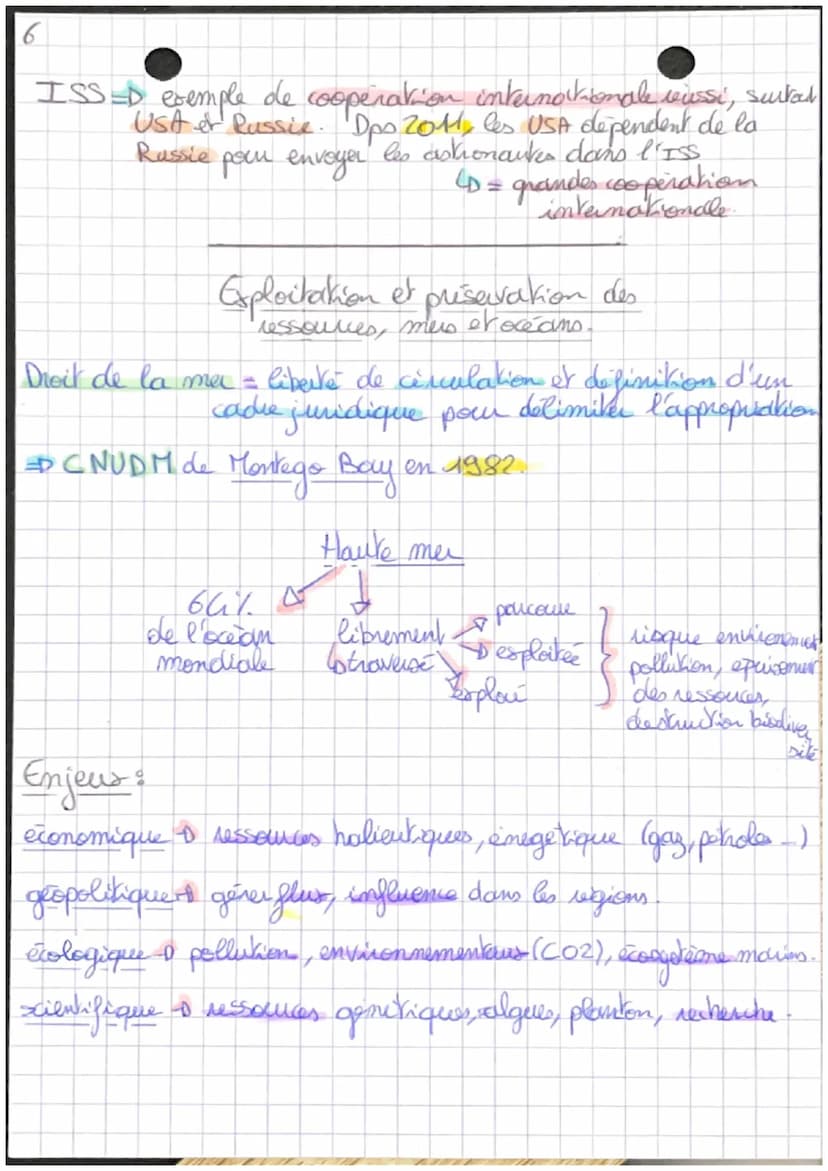 6
ISS => exemple de coopération internationale réussi, surtout
USA et Russie. Dps 2011, les USA dépendent de la
Russie pour envoyer les astronautes dans l'ISS
↳ = grandes coopération
internationale.
Exploitation et préservation des
ressources, mers et océans.
Droit de la mer = liberté de circulation et définition d'un
cadre juridique pour délimiter l'appropriation
=> CNUDM de Montego Bay en 1982.
Haute mer
64%
de l'océan
mondiale
librement
traversé
parcourue
exploitée
explorée
risque environnement
pollution, épuisement
des ressources,
destruction biodiver
sité
Enjeux :
économique → ressources halieutiques, énergétique (gaz, pétrole ...)
géopolitique → gérer flux, influence dans les régions.
écologique → pollution, environnementaux (CO2), écosystème marins.
scientifique → ressources génétiques, algues, plancton, recherche.